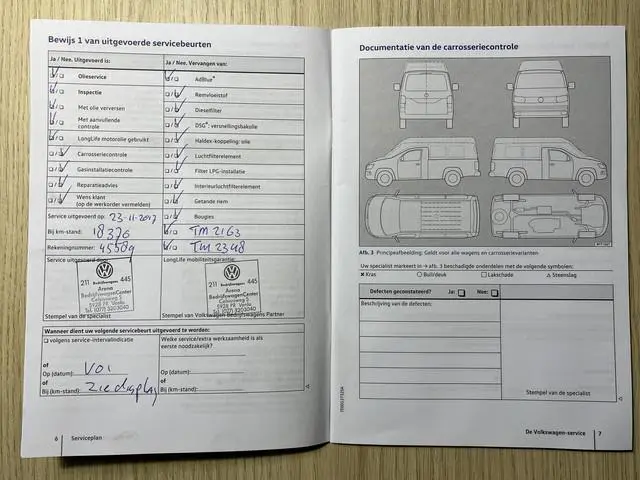 Bewijs 1 van uitgevoerde servicebeurten
Ja / Nee. Uitgevoerd is:
Olieservice
Inspectie
Met olie verversen
Met aanvullende
controle
LongLife motorolie gebruikt
Carrosseriecontrole
Gasinstallatiecontrole
Reparatieadvies
Wens klant
(op de werkorder vermelden)
Ja / Nee. Vervangen van:
AdBlue®
Remvloeistof
Dieselfilter
DSG®: versnellingsbakolie
Haldex-koppeling: olie
Luchtfilterelement
Filter LPG-installatie
Interieurluchtfilterelement
Getande riem
Bougies
Service uitgevoerd op: 23-11-2017
Bij km-stand: 18376
TM 2163
Rekeningnummer: 45589
TM 2348
Service uitgevoerd door:
LongLife mobiliteitsgarantie:
211 Bedrijfswagens 445
Arena
BedrijfswagenCenter
5928 PR Venlo
Tel. (077) 3203040
211 Bedrijfswagens 445
Arena
BedrijfswagenCenter
5928 PR Venlo
Tel. (077) 3203040
Stempel van de specialist
Stempel van Volkswagen Bedrijfswagens Partner
Wanneer dient uw volgende servicebeurt uitgevoerd te worden:
volgens service-intervalindicatie
Welke service/extra werkzaamheid is als
eerste noodzakelijk?
of
Op (datum):
of
Bij (km-stand): Zie display
of
Op (datum):
of
Bij (km-stand):
6 Serviceplan
Documentatie van de carrosseriecontrole
Afb. 3 Principeafbeelding: Geldt voor alle wagens en carrosserievarianten
Uw specialist markeert in → afb. 3 beschadigde onderdelen met de volgende symbolen:
Kras
Buil/deuk
Lakschade
Steenslag
Defecten geconstateerd?
Ja:
Nee:
Beschrijving van de defecten:
Stempel van de specialist
De Volkswagen-service 7